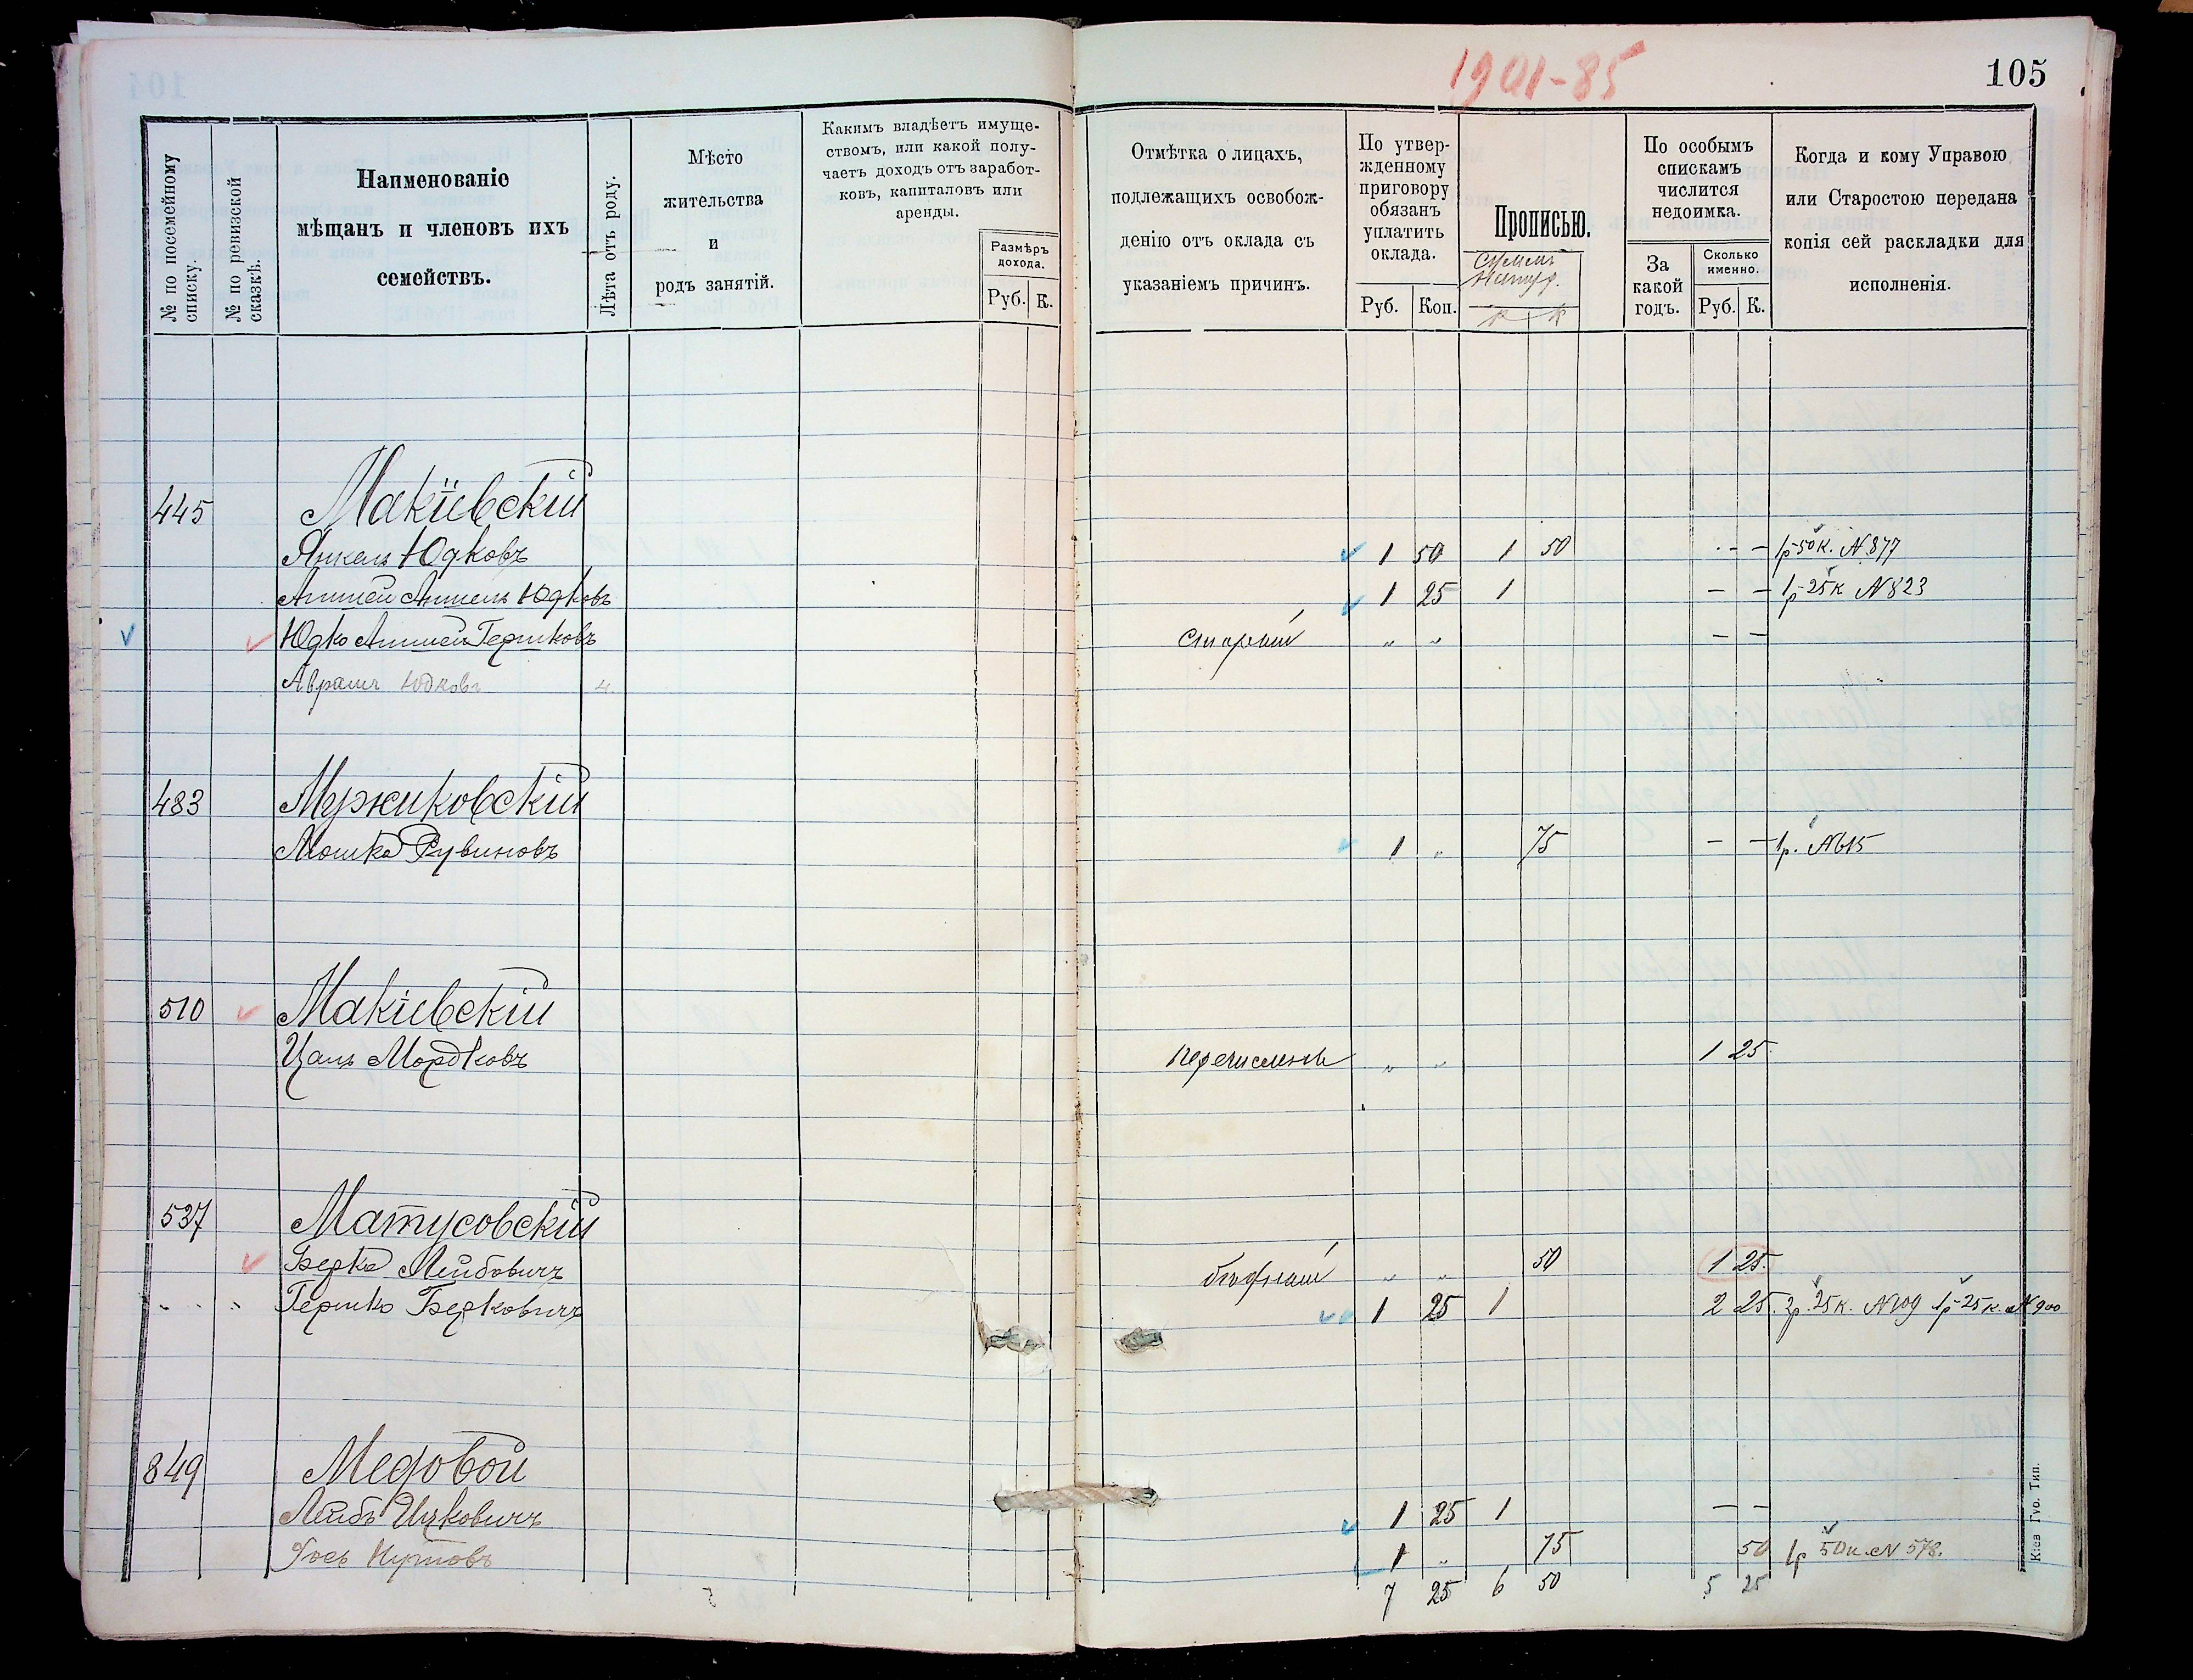 1901-85
105
№ по посемейному списку.
№ по ревизской сказкѣ.
Наименованіе
мѣщанъ и членовъ ихъ
семействъ.
Лѣта отъ роду.
Мѣсто
жительства
и
родъ занятій.
Какимъ владѣетъ имуще-
ствомъ, или какой полу-
чаетъ доходъ отъ заработ-
ковъ, капиталовъ или
аренды.
Размѣръ
дохода.
Руб. К.
Отмѣтка о лицахъ,
подлежащихъ освобож-
денію отъ оклада съ
указаніемъ причинъ.
По утвер-
жденному
приговору
обязанъ
уплатить
оклада.
Руб. Коп.
Прописью.
По особымъ
спискамъ
числится
недоимка.
За
какой
годъ.
Сколько
именно.
Руб. К.
Когда и кому Управою
или Старостою передана
копія сей раскладки для
исполненія.
445 Макіевскій
Янкель Юдковъ 1 50 1 50 - - 1р 50 к. N 877
Аншель Юдковъ 1 25 1 - - 1р 25 к N 823
Юдко Гершковъ старый „ „ - -
Аврамъ Юдковъ 4
483 Мужиковскій
Мошко Рувиновъ 1 „ 75 - - 1р. N 615
510 Макіевскій
Цаль Мордковъ перечисленъ „ „ 1 25
537 Матусовскій
Берко Лейбовичъ бѣдный „ „ 50 1 25.
„ „ Гершко Берковичъ 1 25 1 2 25. 2р. 25 к. N 109 1р 25 к. N 900
849 Медовой
Лейбъ Ицковичъ 1 25 1 - -
Гось 1 „ 75 50 1р 50 к N 578.
7 25 6 50 5 25
Кіев Губ. Тип.